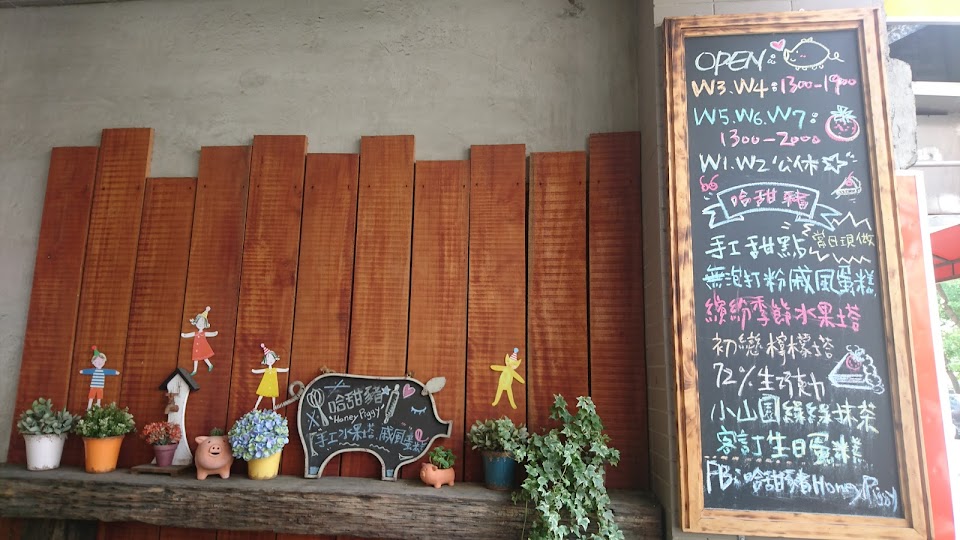 哈甜豬
Honey Piggy
手工水果塔.戚風蛋糕
OPEN:
W3.W4:1300-1900
W5.W6.W7:
1300-2000
W1.W2公休
哈甜豬
手工甜點 當日現做
無泡打粉戚風蛋糕
繽紛季節水果塔
初戀檸檬塔
72%生巧克力
小山園綿綿抹茶
客訂生日蛋糕
FB:哈甜豬Honey Piggy